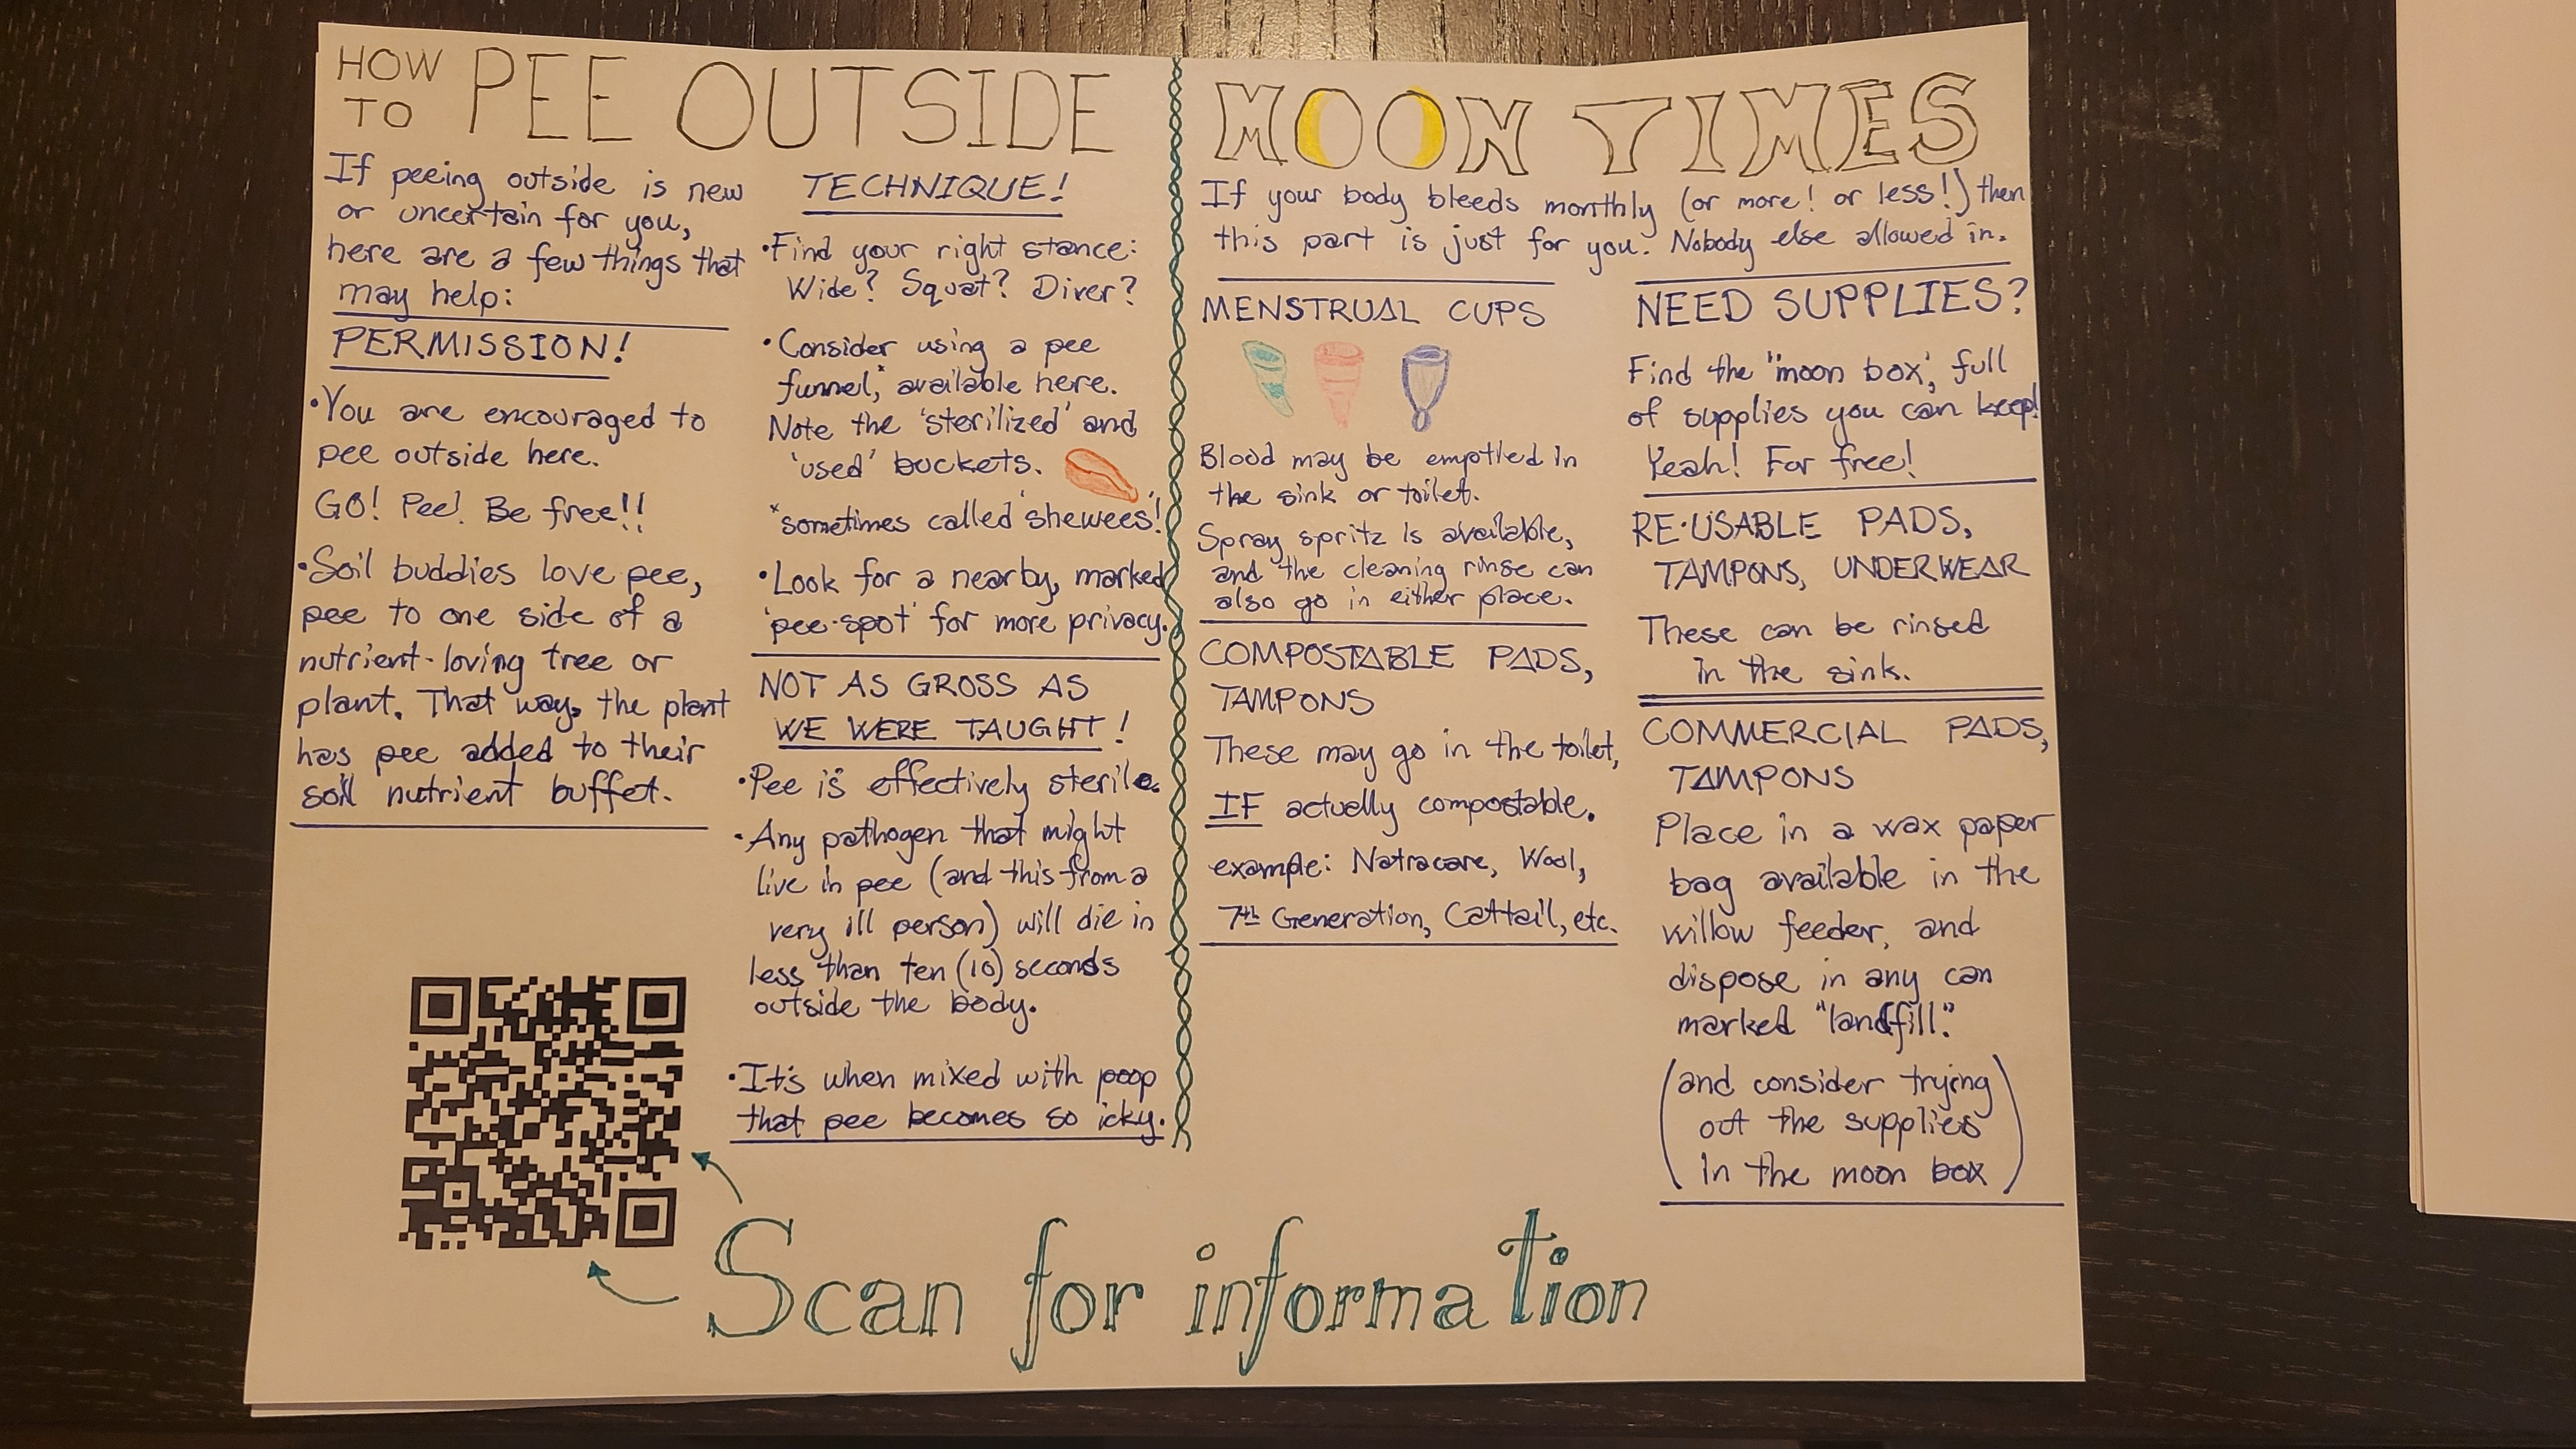 HOW
TO PEE OUTSIDE
If peeing outside is new
or uncertain for you,
here are a few things that
may help:
PERMISSION!
•You are encouraged to
pee outside here.
GO! Pee! Be free!!
•Soil buddies love pee,
pee to one side of a
nutrient-loving tree or
plant. That way, the plant
has pee added to their
soil nutrient buffet.
TECHNIQUE!
•Find your right stance:
Wide? Squat? Diver?
•Consider using a pee
funnel,* available here.
Note the 'sterilized' and
'used' buckets.
*sometimes called 'shewees'!
•Look for a nearby, marked
'pee-spot' for more privacy.
NOT AS GROSS AS
WE WERE TAUGHT!
•Pee is effectively sterile.
•Any pathogen that might
live in pee (and this from a
very ill person) will die in
less than ten (10) seconds
outside the body.
•It's when mixed with poop
that pee becomes so icky.
MOON TIMES
If your body bleeds monthly (or more! or less!) then
this part is just for you. Nobody else allowed in.
MENSTRUAL CUPS
Blood may be emptied in
the sink or toilet.
Spray spritz is available,
and the cleaning rinse can
also go in either place.
COMPOSTABLE PADS,
TAMPONS
These may go in the toilet,
IF actually compostable.
example: Natracare, Wool,
7th Generation, Cattail, etc.
NEED SUPPLIES?
Find the "moon box", full
of supplies you can keep!
Yeah! For free!
RE-USABLE PADS,
TAMPONS, UNDERWEAR
These can be rinsed
in the sink.
COMMERCIAL PADS,
TAMPONS
Place in a wax paper
bag available in the
willow feeder, and
dispose in any can
marked "landfill."
(and consider trying
out the supplies
in the moon box)
Scan for information